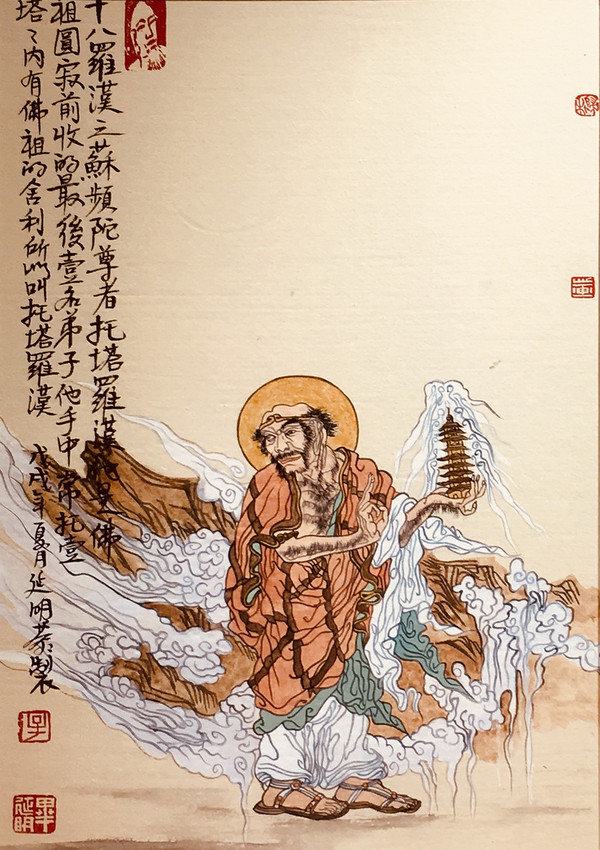 十八羅漢之蘇頻陀尊者托塔羅漢他是佛
祖圓寂前收的最後壹名弟子他手中常托壹
塔々内有佛祖的舍利所以叫托塔羅漢
戊戌年夏月延明恭製
畢延明